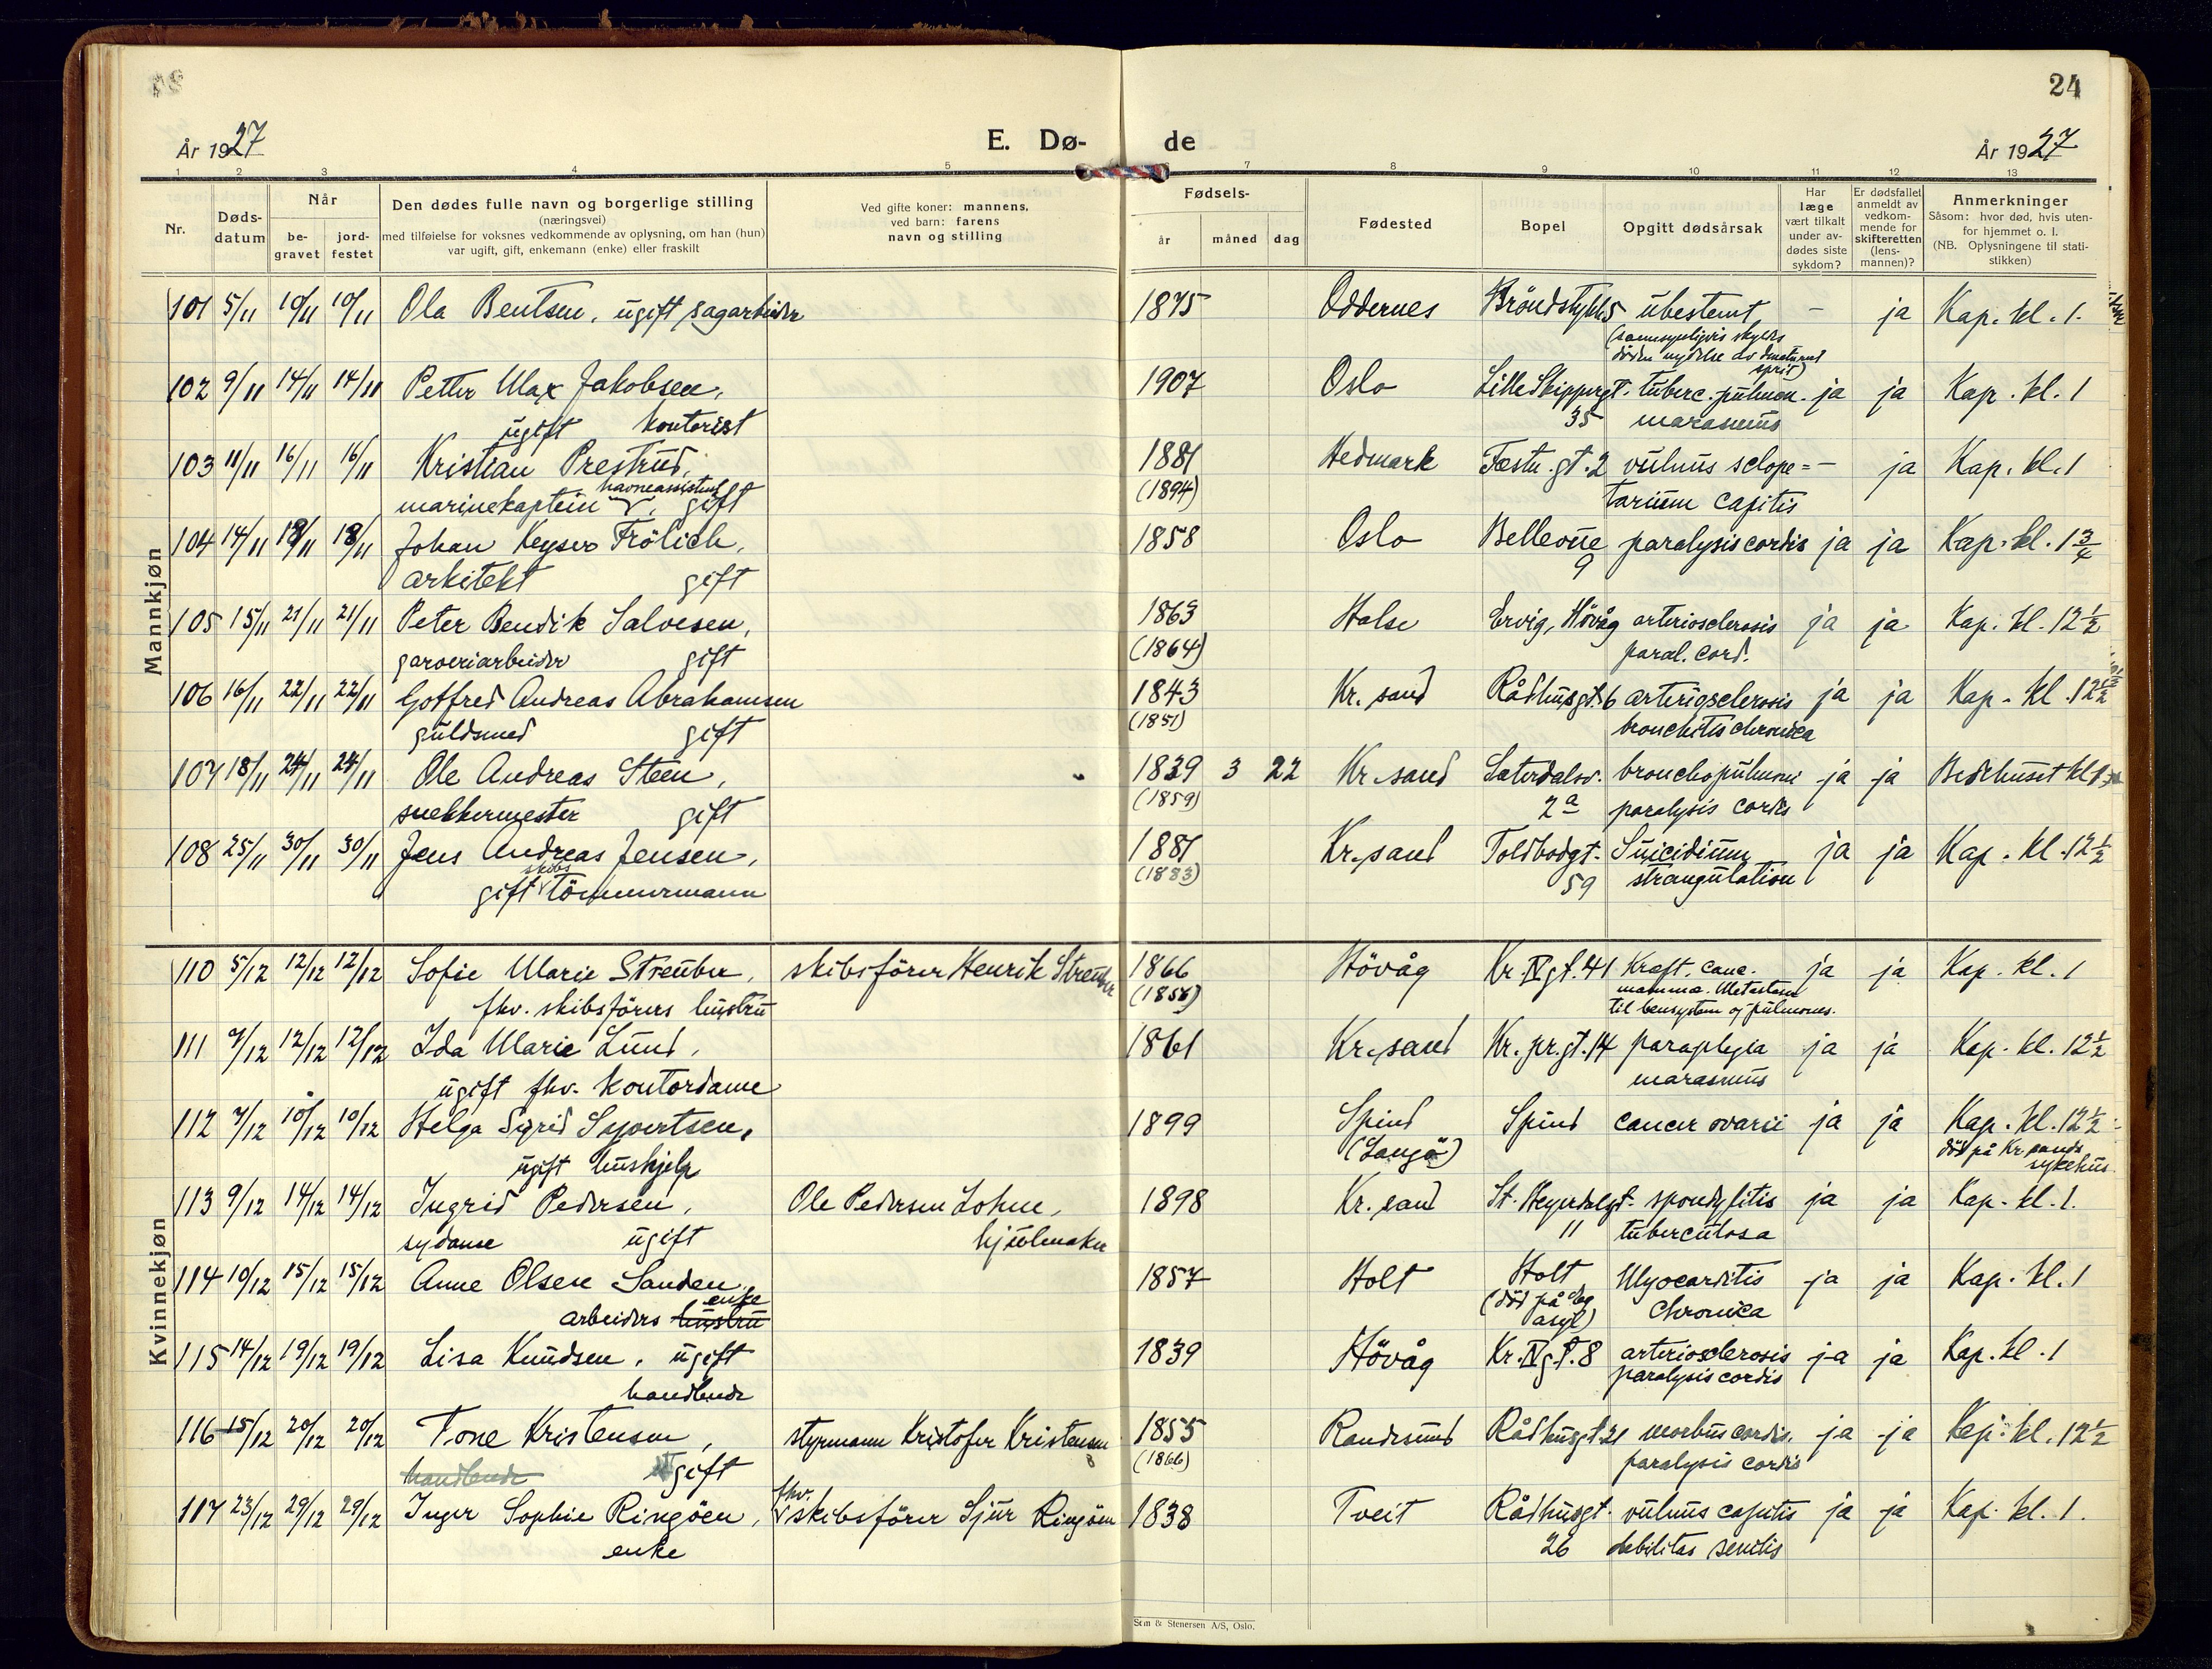 24
År 1927
E. Dø-
de
År 1927
1 2 3 4 5 6 7 8 9 10 11 12 13
Nr.
Døds-
datum
Når
be-
gravet
jord-
festet
Den dødes fulle navn og borgerlige stilling
(næringsvei)
med tilføielse for voksnes vedkommende av oplysning, om han (hun)
var ugift, gift, enkemann (enke) eller fraskilt
Ved gifte koner: mannens,
ved barn: farens
navn og stilling
Fødsels-
år måned dag
Fødested
Bopel
Opgitt dødsårsak
Har
læge
vært tilkalt
under av-
dødes siste
sykdom?
Er dødsfallet
anmeldt av
vedkom-
mende for
skifteretten
(lens-
mannen)?
Anmerkninger
Såsom: hvor død, hvis uten-
for hjemmet o. l.
(NB. Oplysningene til stati-
stikken)
Mannkjøn
101 5/11 10/11 10/11 Ola Bentsen, ugift sagarbeider 1875 Oddernes Bröndstykk 5 ubestemt - ja Kap. kl. 1.
(sannsynligvis skyldes
döden nydelse av denaturert
sprit)
102 9/11 14/11 14/11 Petter Max Jakobsen, 1907 Oslo Lille Skippergt. tuberc. pulmon. ja ja Kap. kl. 1
ugift kontorist 35 marasmus
103 11/11 16/11 16/11 Kristian Prestrud, 1881 Hedmark Festn. gt. 2 vulnus sclope= - ja Kap. kl. 1
havneassistent
marinekaptein, gift (1894) tarium capitis
104 14/11 18/11 18/11 Johan Keyser Frölich, 1858 Oslo Bellevue paralysis cordis ja ja Kap. kl. 1 3/4
arkitekt gift 9
105 15/11 21/11 21/11 Peter Bendik Salvesen, 1863 Halse Ervig, Hövåg arteriosclerosis ja ja Kap. kl. 12 1/2
garveriarbeider gift (1864) paral. cord.
106 16/11 22/11 22/11 Gotfred Andreas Abrahamsen 1843 Kr. sand Rådhusgt. 6 arteriosclerosis ja ja Kap. kl. 12 1/2
guldsmed gift (1851) bronchitis chronica
107 18/11 24/11 24/11 Ole Andreas Steen, 1839 3 22 Kr. sand Seterdalsv. bronchopulmoni ja ja Bedehuset kl
snekkermester gift (1859) 2a paralysis cordis
108 25/11 30/11 30/11 Jens Andreas Jensen, 1881 Kr. sand Toldbodgt. Suicidium ja ja Kap. kl. 12 1/2
skibs
gift tömmermann (1883) 59 strangulation
Kvinnekjøn
110 5/12 12/12 12/12 Sofie Marie Streuber, skibsförer Henrik Streuber 1866 Hövåg Kr. IV gt. 41 Kraft. canc. ja ja Kap. kl. 1
fhv. skibsförers hustru (1856) mamma. Metastase
til bensystem og pulmones.
111 7/12 12/12 12/12 Ida Marie Lund, 1861 Kr. sand Kr. pr. gt. 14 paraplegia ja ja Kap. kl. 12 1/2
ugift fhv. kontordame marasmus
112 7/12 10/12 10/12 Helga Sigrid Syvertsen, 1899 Spind Spind cancer ovarii ja ja Kap. kl. 12 1/2
ugift hushjelp (Langö) död på Kr. sands
sykehus.
113 9/12 14/12 14/12 Ingrid Pedersen, Ole Pedersen Lohne, 1898 Kr. sand St. Heyerdalgt. spondylitis ja ja Kap. kl. 1.
sydame ugift hjulmaker 11 tuberculosa
114 10/12 15/12 15/12 Anne Olsen Sanden, 1857 Holt Holt Myocarditis ja ja Kap. kl. 1
enke
arbeiders hustru (död på asyl) chronica
115 14/12 19/12 19/12 Lisa Knudsen, ugift 1839 Hövåg Kr. IV gt. 8 arteriosclerosis ja ja Kap. kl. 1
handlende paralysis cordis
116 15/12 20/12 20/12 Tone Kristensen, styrmann Kristofer Kristensen 1855 Randesund Rådhusgt. 21 morbus cordis. ja ja Kap. kl. 12 1/2
handlende gift (1866) paralysis cordis
117 23/12 29/12 29/12 Inger Sophie Ringöen, fhv. skibsförer Sjur Ringöen 1838 Tveit Rådhusgt. vulnus capitis ja ja Kap. kl. 1.
enke 26 debilitas senilis
& Stenersen A/S, Oslo.